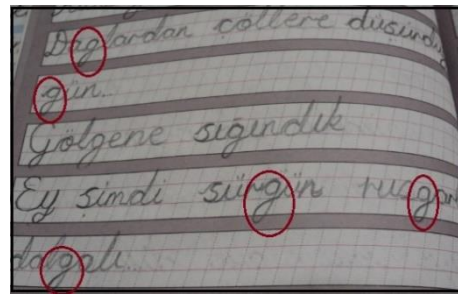 Daglardan çöllere düşürdü
gün...
Gölgene sığındık
Ey şimdi sürgün
dalgalı...